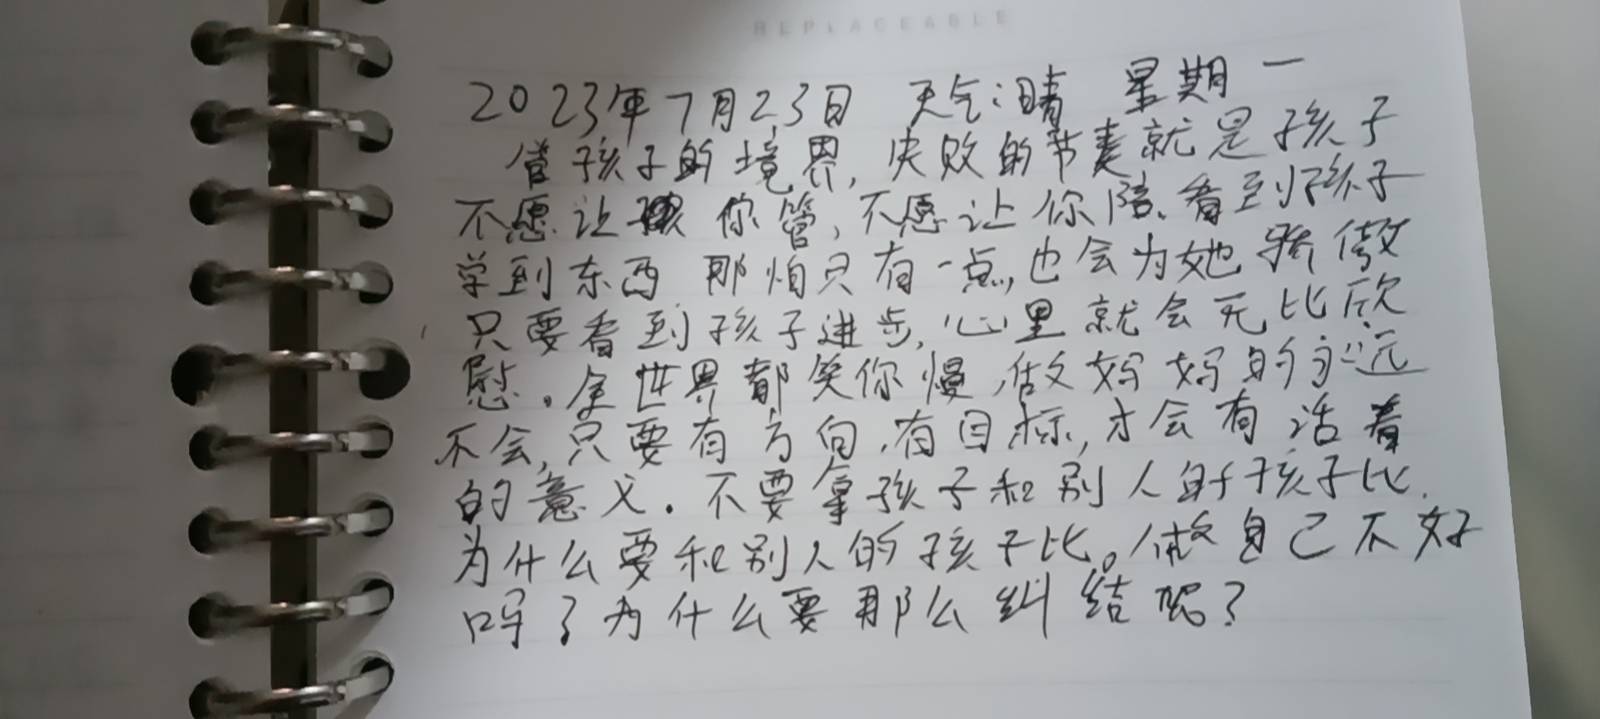 REPLACEABLE
2023年7月23日 天气:晴 星期一
管孩子的境界,失败的节奏就是孩子
不愿让 你管,不愿让你陪、看到孩子
学到东西 那怕只有一点,也会为她骄傲
只要看到孩子进步,心里就会无比欣
慰。全世界都笑你慢,做妈妈的永远
不会,只要有方向,有目标,才会有活着
的意义.不要拿孩子和别人的孩子比.
为什么要和别人的孩子比。做自己不好
吗?为什么要那么纠结呢?